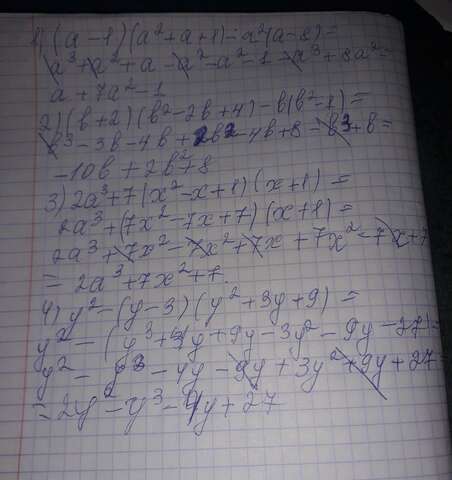 1) (a-1)(a²+a+1)-a²(a-8)=
a³+a²+a-a²-a²-1-a³+8a²=
a+7a²-1
2) (b+2)(b²-2b+4)-b(b²-1)=
b³-3b-4b+2b²-4b+8-b³+b=
-10b+2b²+8
3) 2a³+7(x²-x+1)(x+1)=
2a³+(7x²-7x+7)(x+1)=
2a³+7x²-7x²+7x+7x²-7x+7
=2a³+7x²+7.
4) y²-(y-3)(y²+3y+9)=
y²-(y³+4y+9y-3y²-9y-27)=
y²-y³-4y-9y+3y²+9y+27=
=2y²-y³-4y+27